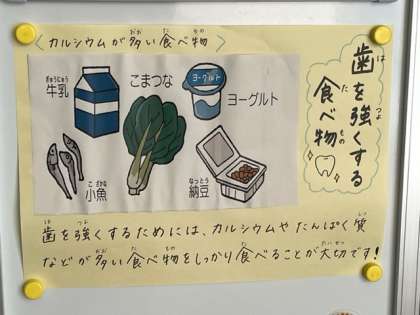 〈カルシウムが多い食べ物〉
歯を強くする
食べ物
牛乳
こまつな
ヨーグルト
ヨーグルト
小魚
納豆
歯を強くするためには、カルシウムやたんぱく質
などが多い食べ物をしっかり食べることが大切です!